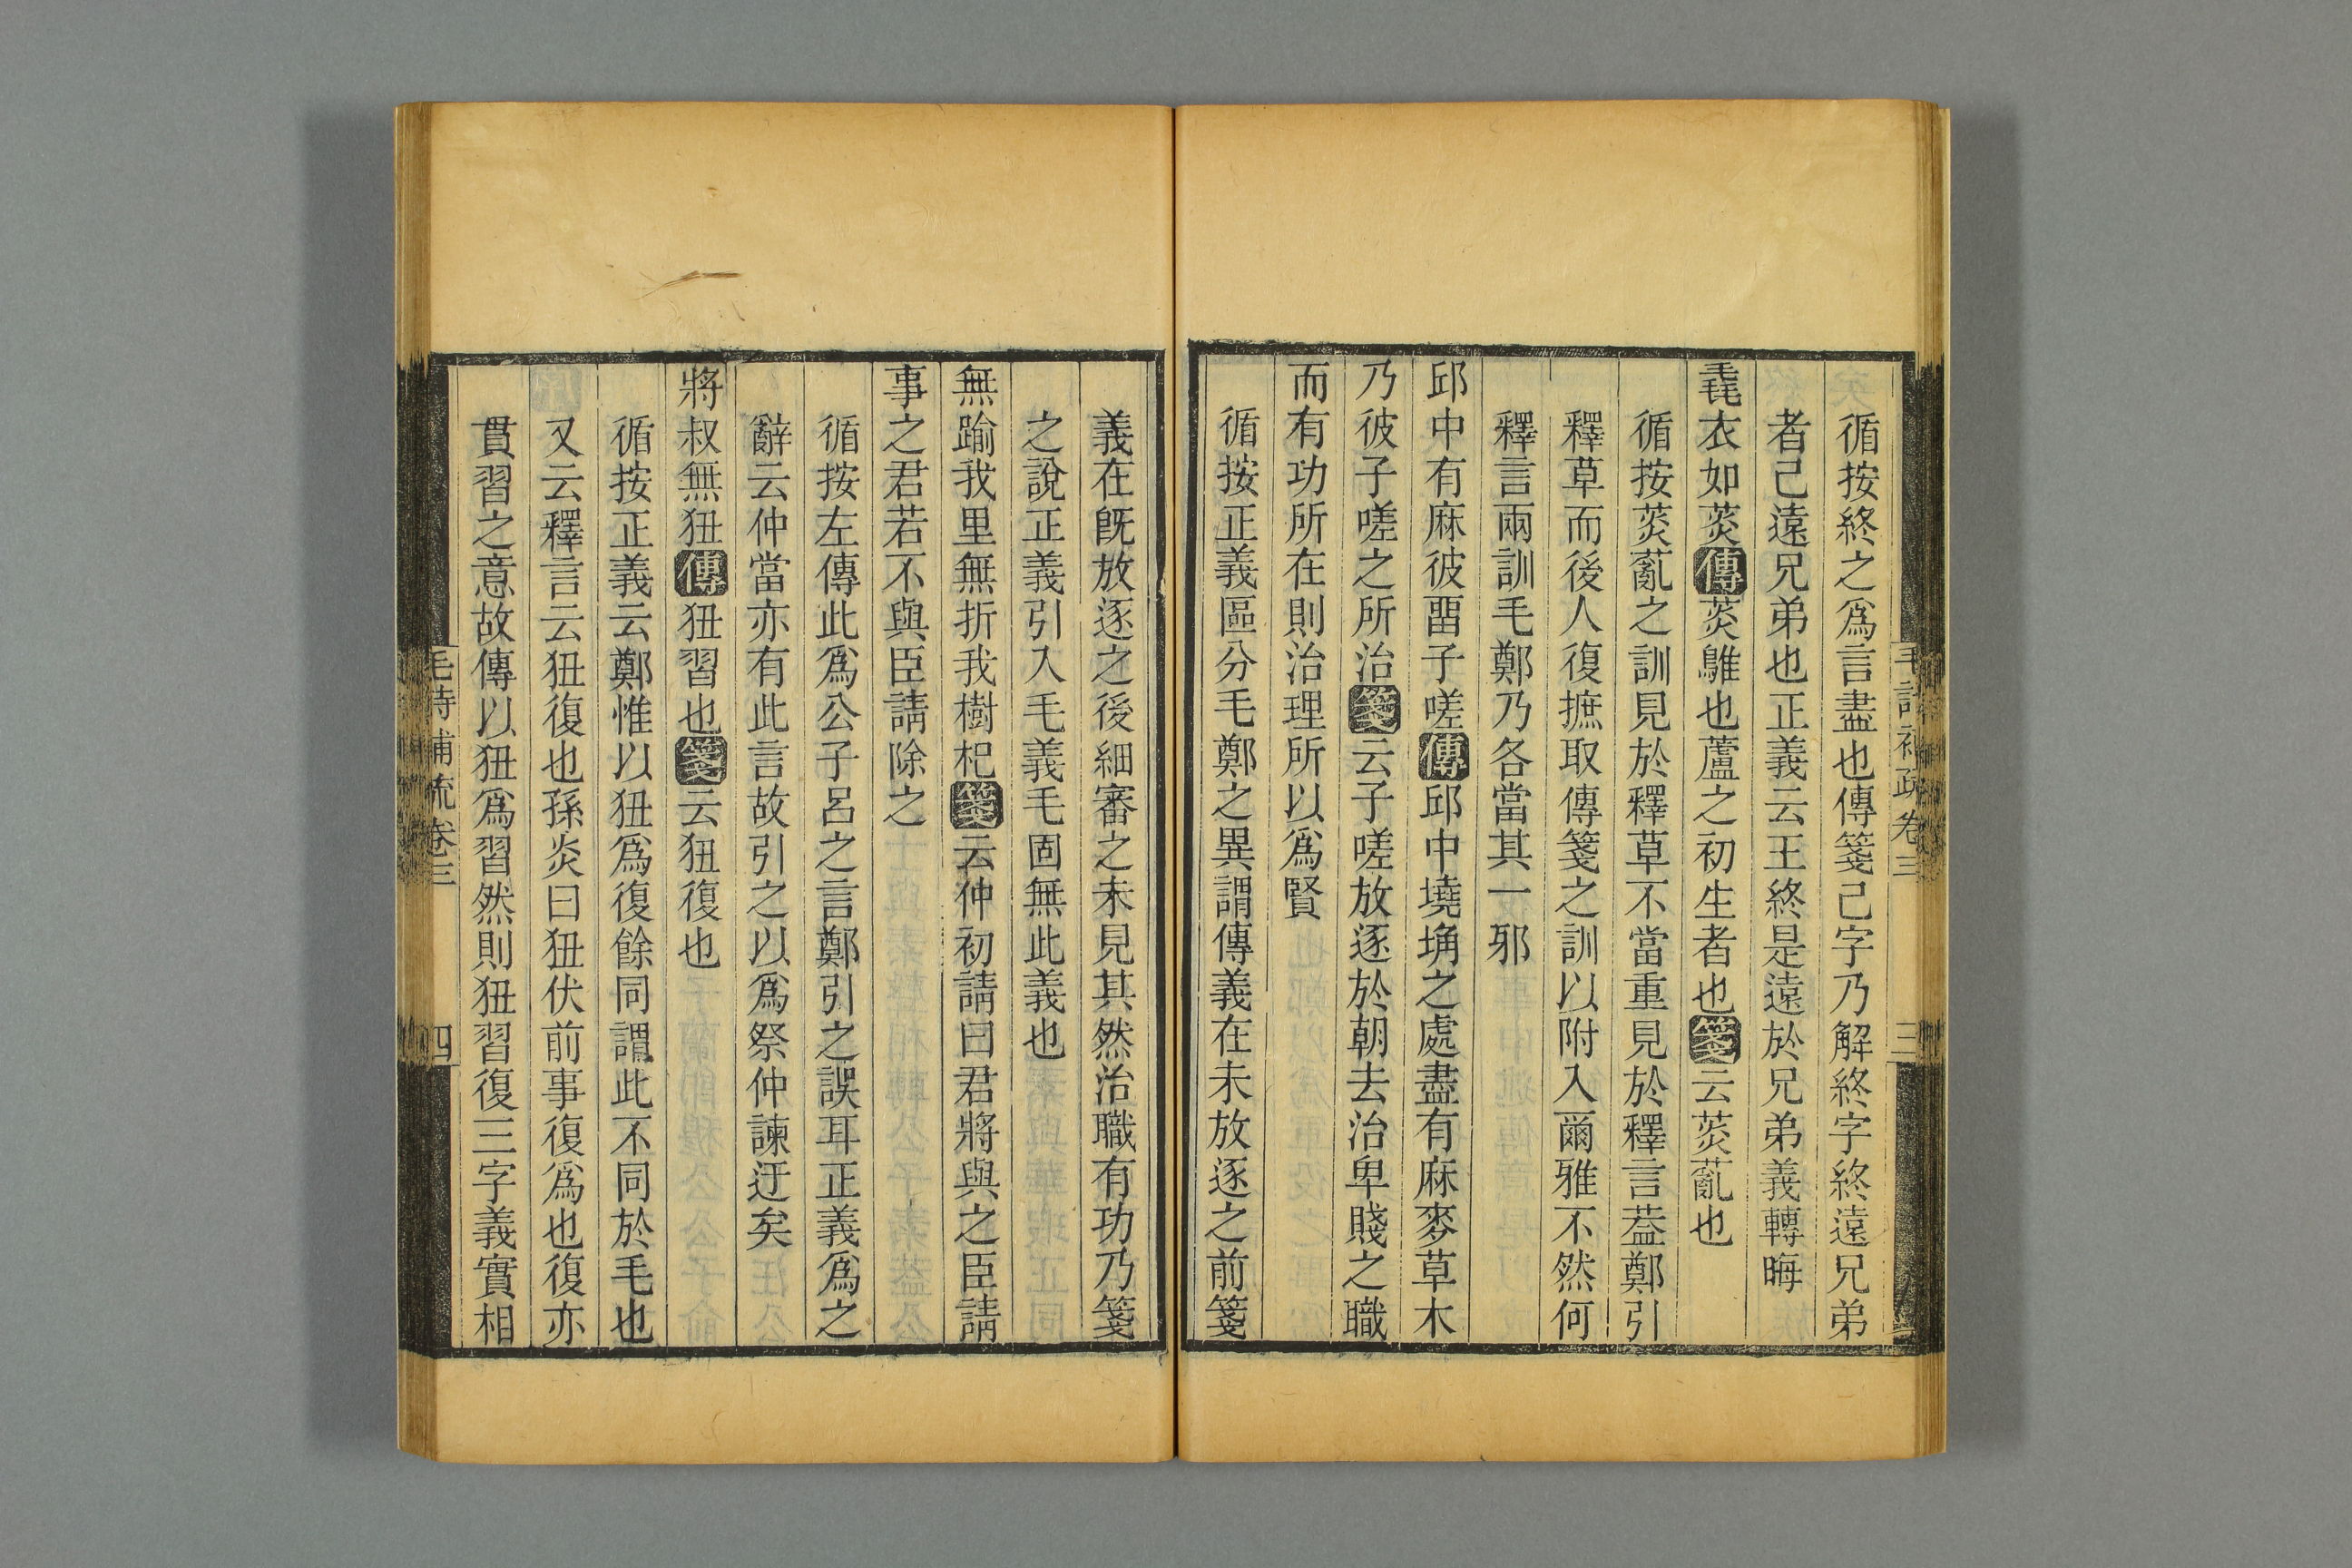 毛詩補疏卷三
三
循按終之爲言盡也傳箋己字乃解終字終遠兄弟
者己遠兄弟也正義云王終是遠於兄弟義轉晦
毳衣如菼傳菼鵻也蘆之初生者也箋云菼薍也
循按菼薍之訓見於釋草不當重見於釋言葢鄭引
釋草而後人復摭取傳箋之訓以附入爾雅不然何
釋言兩訓毛鄭乃各當其一邪
邱中有麻彼畱子嗟傳邱中墝埆之處盡有麻麥草木
乃彼子嗟之所治箋云子嗟放逐於朝去治卑賤之職
而有功所在則治理所以爲賢
循按正義區分毛鄭之異謂傳義在未放逐之前箋
義在旣放逐之後細審之未見其然治職有功乃箋
之說正義引入毛義毛固無此義也
無踰我里無折我樹杞箋云仲初請曰君將與之臣請
事之君若不與臣請除之
循按左傳此爲公子呂之言鄭引之誤耳正義爲之
辭云仲當亦有此言故引之以爲祭仲諫迂矣
將叔無狃傳狃習也箋云狃復也
循按正義云鄭惟以狃爲復餘同謂此不同於毛也
又云釋言云狃復也孫炎曰狃伏前事復爲也復亦
貫習之意故傳以狃爲習然則狃習復三字義實相
毛詩補疏卷三
四